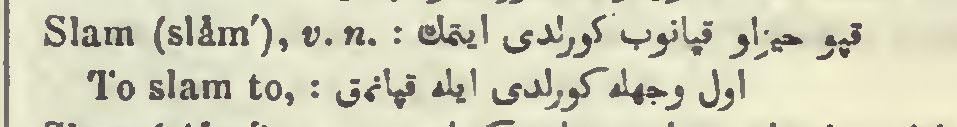 Slam (slåm′), v. n. : قپو حيزلو قپانوب كورلدى ايتمك
To slam to, : اول وجهله كورلدى ايله قپانمق